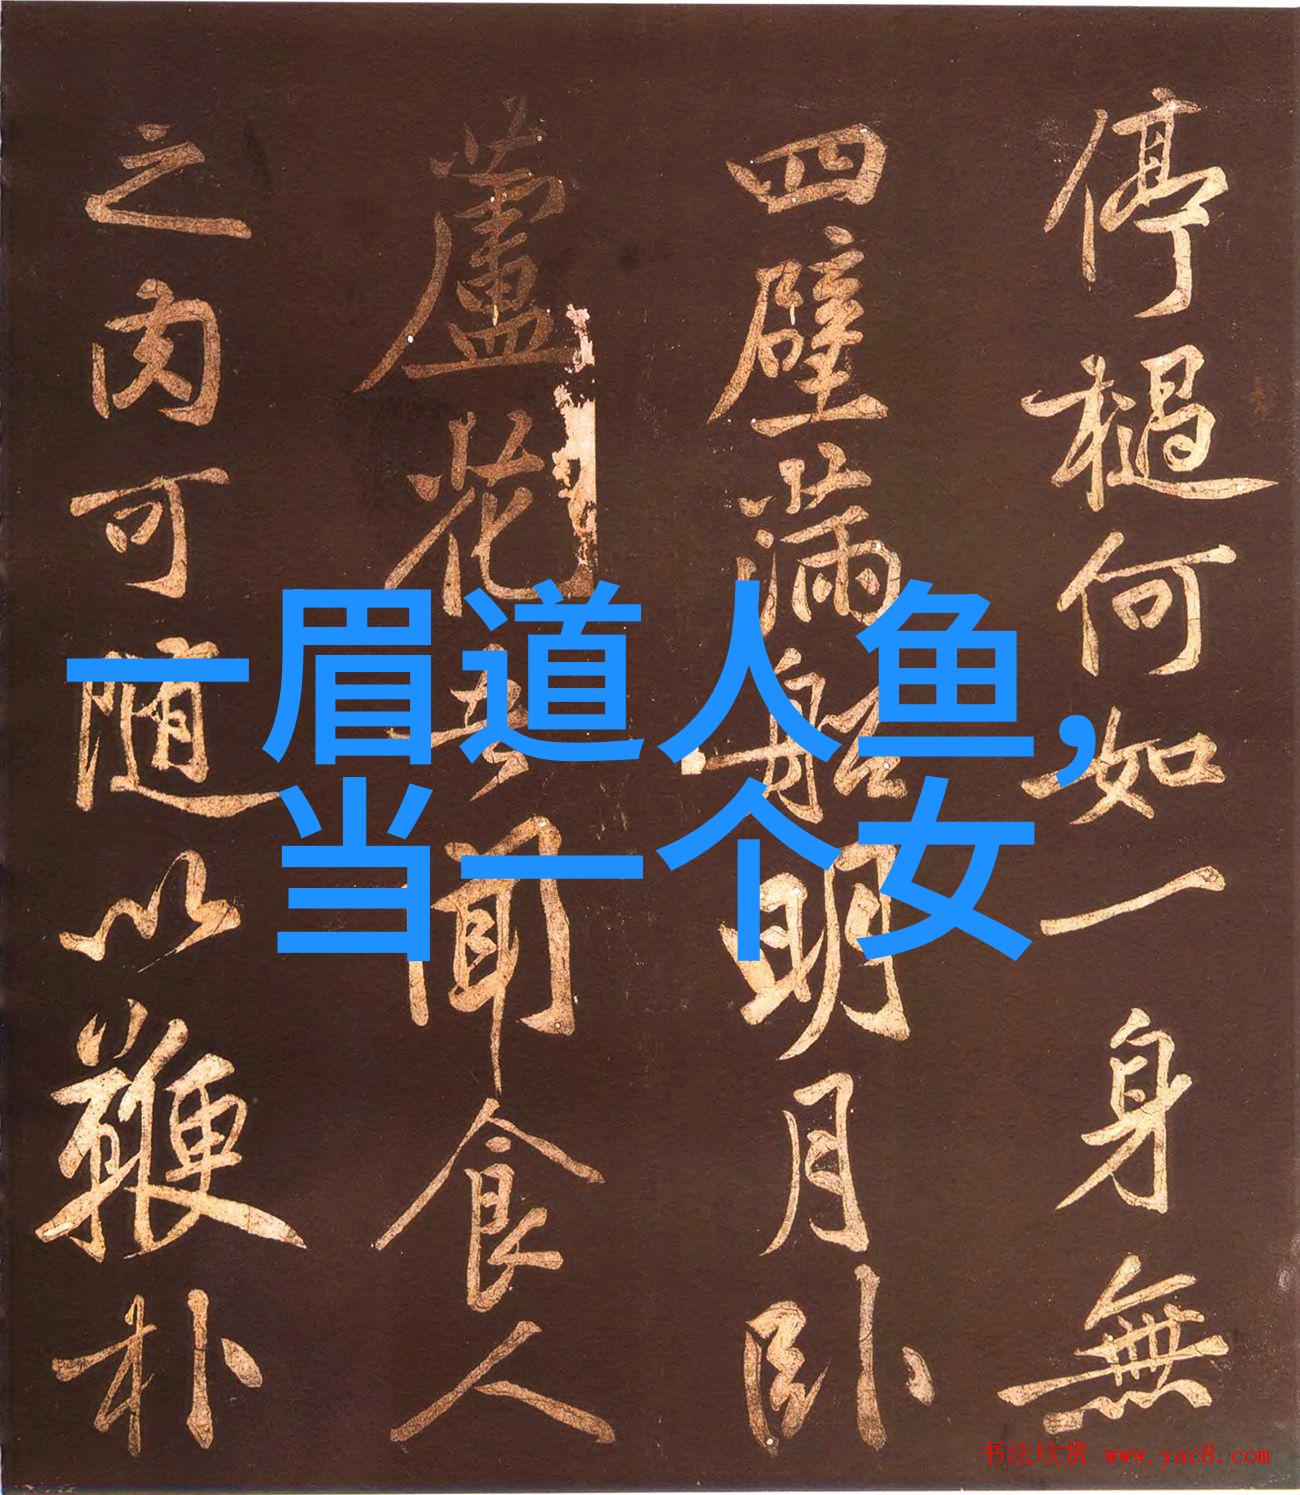 停檛何如一身無
四壁滿船明月卧
蘆花吾聞食人
之肉可随以鞭朴
一眉道人鱼，
当一个女
书法欣赏 www.yac8.com